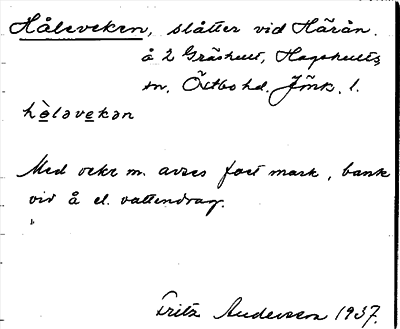 Hålaveken, slåtter vid Härån.
å 2 Gräshult, Hagshults
sn, Östbo hd. Jönk. l.
hò̀lavekan
Med veke m. avses fast mark, bank
vid å el. vattendrag.
Fritz Andersson 1937.